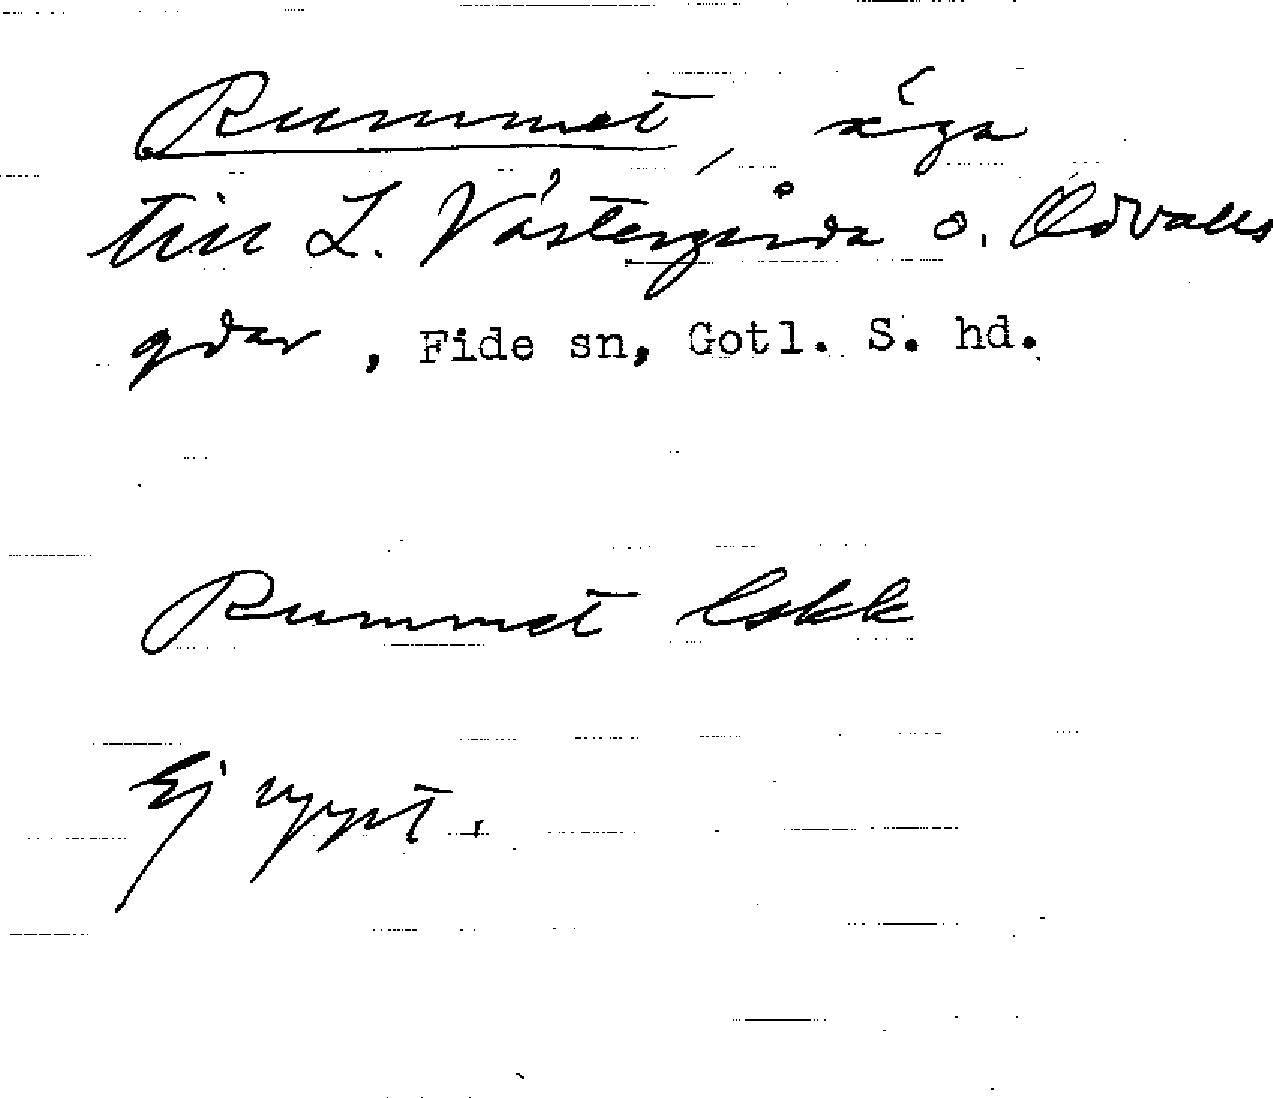 Rummet, äga
till L. Västergårda o. Odvalls
gdar, Fide sn, Gotl. S. hd.
Rummet lskk
Ej uppt.